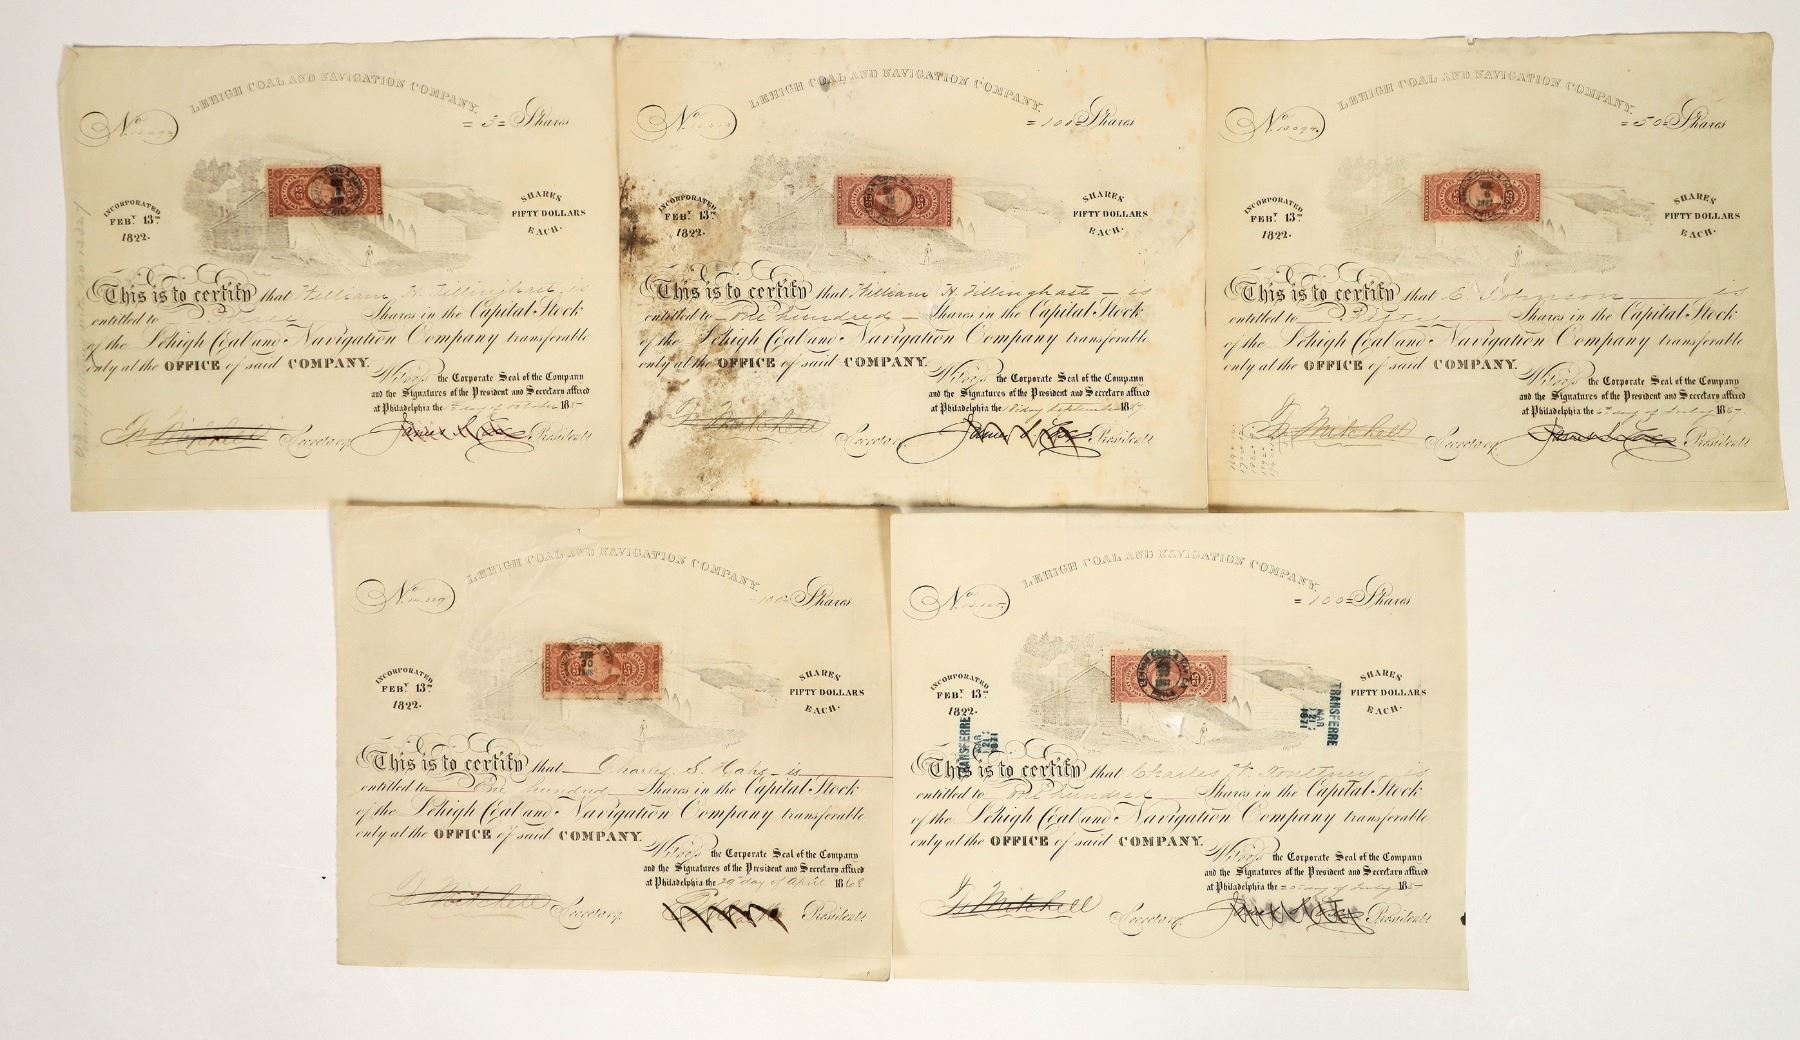 LEHIGH COAL AND NAVIGATION COMPANY.
No
= 3 = Shares
25
INCORPORATED
FEBY 13TH
1822.
SHARES
FIFTY DOLLARS
EACH.
This is to certify that William H. Tillinghast is
entitled to Three Shares in the Capital Stock
of the Lehigh Coal and Navigation Company transferable
only at the OFFICE of said COMPANY.
Witness the Corporate Seal of the Company
and the Signatures of the President and Secretary affixed
at Philadelphia the day of October 18
F. Mitchell Secretary. President.
LEHIGH COAL AND NAVIGATION COMPANY.
No
= 100 = Shares
25 25
INCORPORATED
FEBY 13TH
1822.
SHARES
FIFTY DOLLARS
EACH.
This is to certify that William H. Tillinghast - is
entitled to - One hundred - Shares in the Capital Stock
of the Lehigh Coal and Navigation Company transferable
only at the OFFICE of said COMPANY.
Witness the Corporate Seal of the Company
and the Signatures of the President and Secretary affixed
at Philadelphia the day September 1867
F. Mitchell Secretary. James S. Cox President.
LEHIGH COAL AND NAVIGATION COMPANY.
No 13094
= 50 = Shares
LEHIGH COAL & NAV. CO.
6
1867
PHILA
INCORPORATED
FEBY 13TH
1822.
SHARES
FIFTY DOLLARS
EACH.
This is to certify that C Johnson is
entitled to Fifty Shares in the Capital Stock
of the Lehigh Coal and Navigation Company transferable
only at the OFFICE of said COMPANY.
Witness the Corporate Seal of the Company
and the Signatures of the President and Secretary affixed
at Philadelphia the 6th day of July 1867
F. Mitchell Secretary. James S. Cox President.
LEHIGH COAL AND NAVIGATION COMPANY.
No
100 = Shares
APR
30
1868
25
INCORPORATED
FEBY 13TH
1822.
SHARES
FIFTY DOLLARS
EACH.
This is to certify that Charles S. - is
entitled to One hundred Shares in the Capital Stock
of the Lehigh Coal and Navigation Company transferable
only at the OFFICE of said COMPANY.
Witness the Corporate Seal of the Company
and the Signatures of the President and Secretary affixed
at Philadelphia the 29th day of April 1868
F. Mitchell Secretary. President.
LEHIGH COAL AND NAVIGATION COMPANY.
No
= 100 = Shares
LEHIGH COAL & NAV. CO.
1867
PHILA
25
INCORPORATED
FEBY 13TH
1822.
SHARES
FIFTY DOLLARS
EACH.
TRANSFERRE
MAR
21
1871
TRANSFERRE
MAR
21
1871
This is to certify that Charles is
entitled to One hundred Shares in the Capital Stock
of the Lehigh Coal and Navigation Company transferable
only at the OFFICE of said COMPANY.
Witness the Corporate Seal of the Company
and the Signatures of the President and Secretary affixed
at Philadelphia the day of July 18
F. Mitchell Secretary. President.